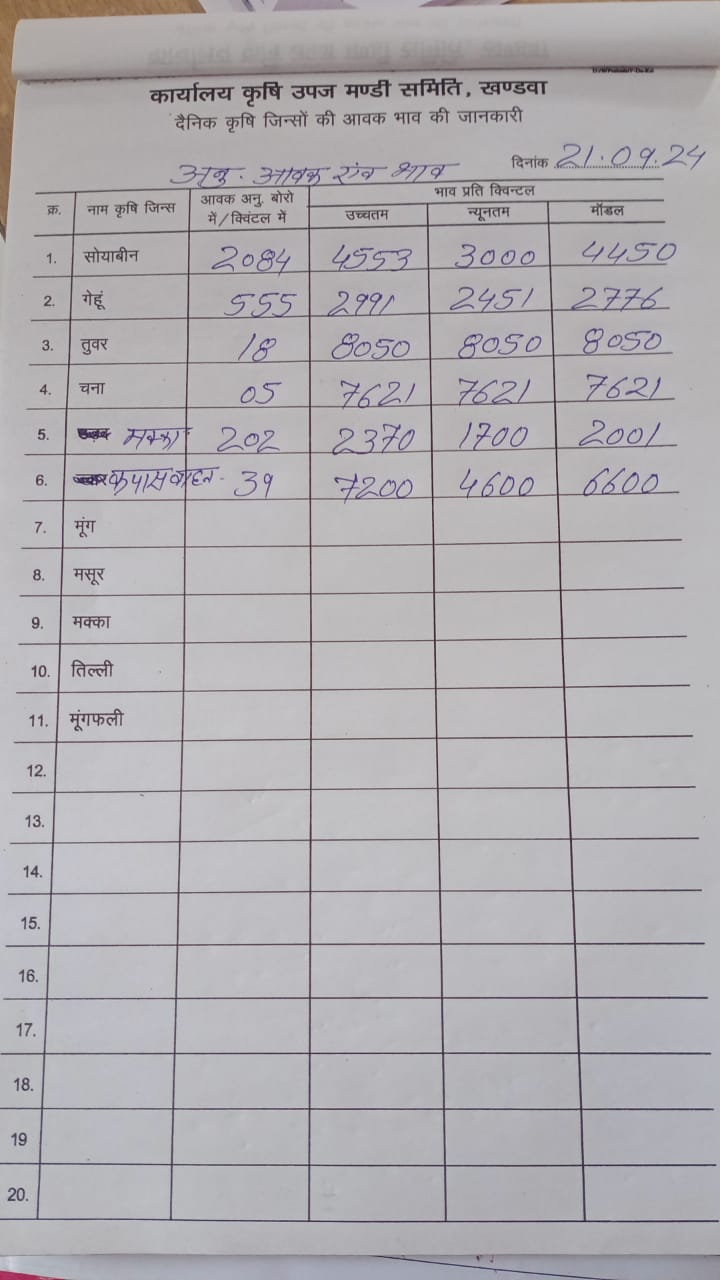 कार्यालय कृषि उपज मण्डी समिति, खण्डवा
दैनिक कृषि जिन्सों की आवक भाव की जानकारी
अनु. आवक एंव भाव दिनांक 21.09.24
क्र. नाम कृषि जिन्स आवक अनु. बोरो में/क्विंटल में भाव प्रति क्विन्टल
उच्चतम न्यूनतम मॉडल
1. सोयाबीन 2084 4553 3000 4450
2. गेहूं 555 2991 2451 2776
3. तुवर 18 8050 8050 8050
4. चना 05 7621 7621 7621
5. मक्का 202 2370 1700 2001
6. कपास वाहन 39 7200 4600 6600
7. मूंग
8. मसूर
9. मक्का
10. तिल्ली
11. मूंगफली
12.
13.
14.
15.
16.
17.
18.
19
20.